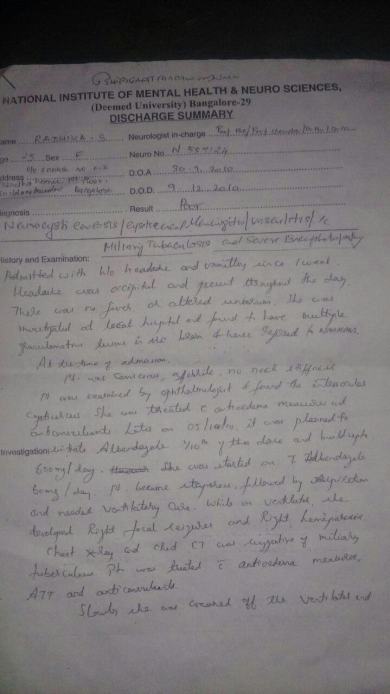 NATIONAL INSTITUTE OF MENTAL HEALTH & NEURO SCIENCES,
(Deemed University) Bangalore-29
DISCHARGE SUMMARY
Name RADHIKA - S Neurologist in-charge
Age 25 Sex F Neuro No. N
Address D.O.A 30 - 9. 2010
Bangalore D.O.D. 9. 12. 2010
Diagnosis Result Poor
Neurocysticercosis/Cysticercal Meningitis/Vasculitis/
Miliary Tuberculosis and Severe Encephalopathy
History and Examination:
Admitted with h/o headache and vomiting since 1 week.
Headache was occipital and present throughout the day.
There was no fever or altered sensorium. She was
investigated at local hospital and found to have multiple
granulomatous lesions in the brain & hence referred to NIMHANS.
At the time of admission
Pt. was conscious, afebrile, no neck stiffness
Pt was examined by ophthalmologist & found to
She was treated c antioedema measures and
anticonvulsants Later on it was planned to
Investigation: initiate Albendazole 1/10th of the dose and
600mg/day. She was started on T. Albendazole
60mg/day. Pt. became followed by
and needed ventilatory care. While on ventilator she
developed Right focal seizures and Right hemiparesis
Chest X-ray and chest CT was suggestive of miliary
tuberculosis Pt was treated c antioedema measures,
ATT and anticonvulsants.
Slowly she was weaned off the ventilator and